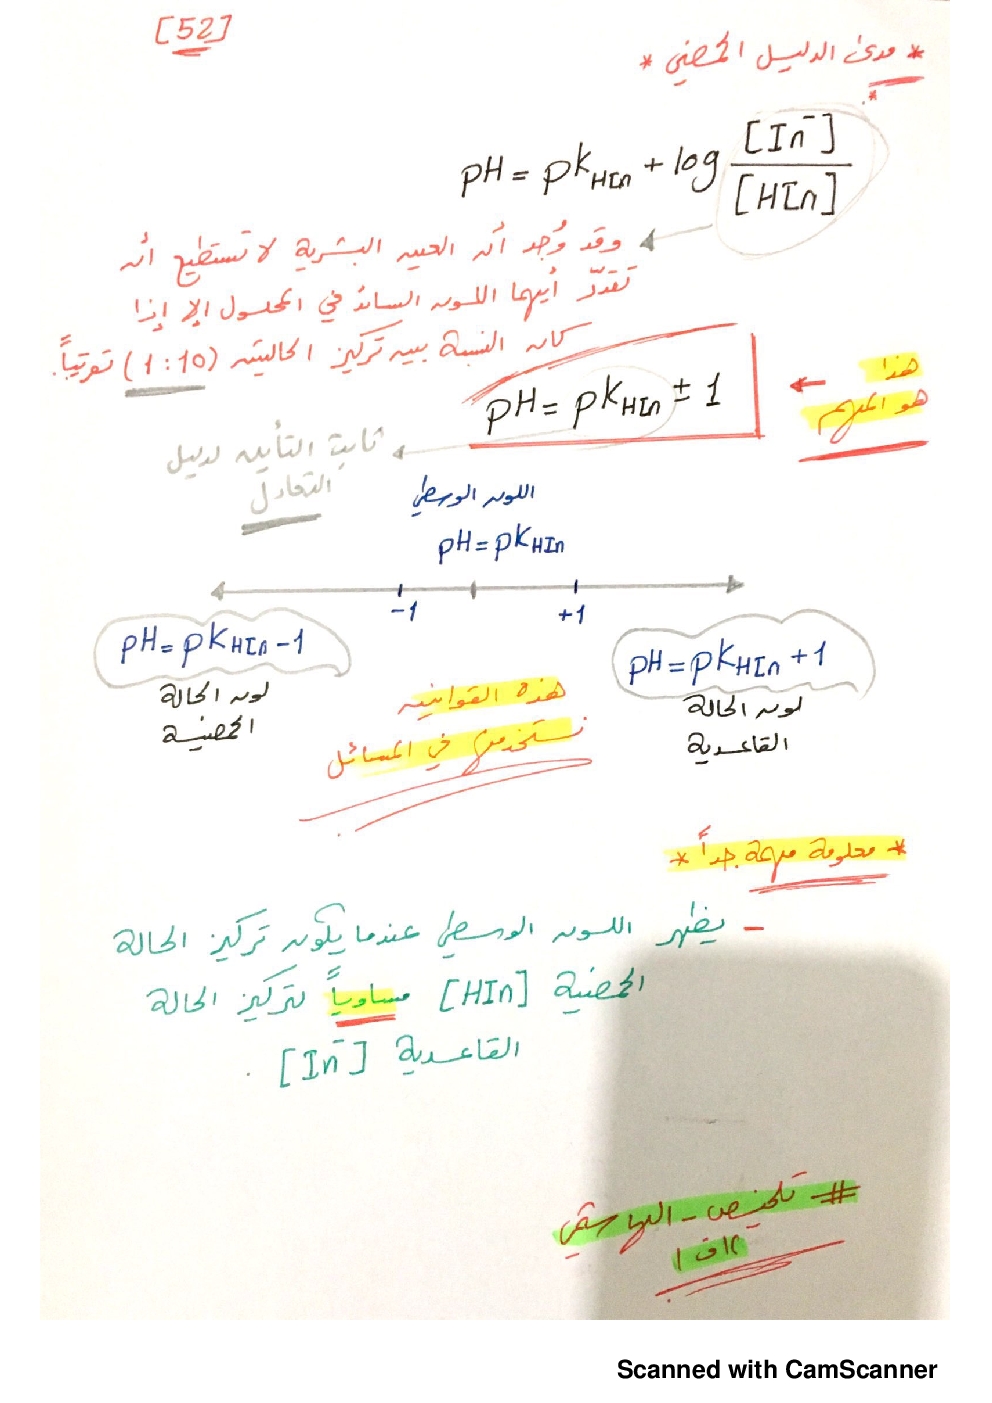 [52]
* مدى الدليل الحمضي *
pH = pK_HIn + log [In⁻] / [HIn]
وقد وُجد أن العين البشرية لا تستطيع أن
تقدّر أيهما اللون السائد في المحلول إلا إذا
كان النسبة بين تركيز الحالتين (1:10) تقريباً.
هذا
هو المهم
pH = pK_HIn ± 1
ثابت التأين لدليل
التعادل
اللون الوسطي
pH = pK_HIn
-1 +1
pH = pK_HIn - 1
لون الحالة
الحمضية
pH = pK_HIn + 1
لون الحالة
القاعدية
هذه القوانين
نستخدمها في المسائل
* معلومة مهمة جداً *
- يظهر اللون الوسطي عندما يكون تركيز الحالة
الحمضية [HIn] مساوياً لتركيز الحالة
القاعدية [In⁻] .
#- تلخيص -
Scanned with CamScanner